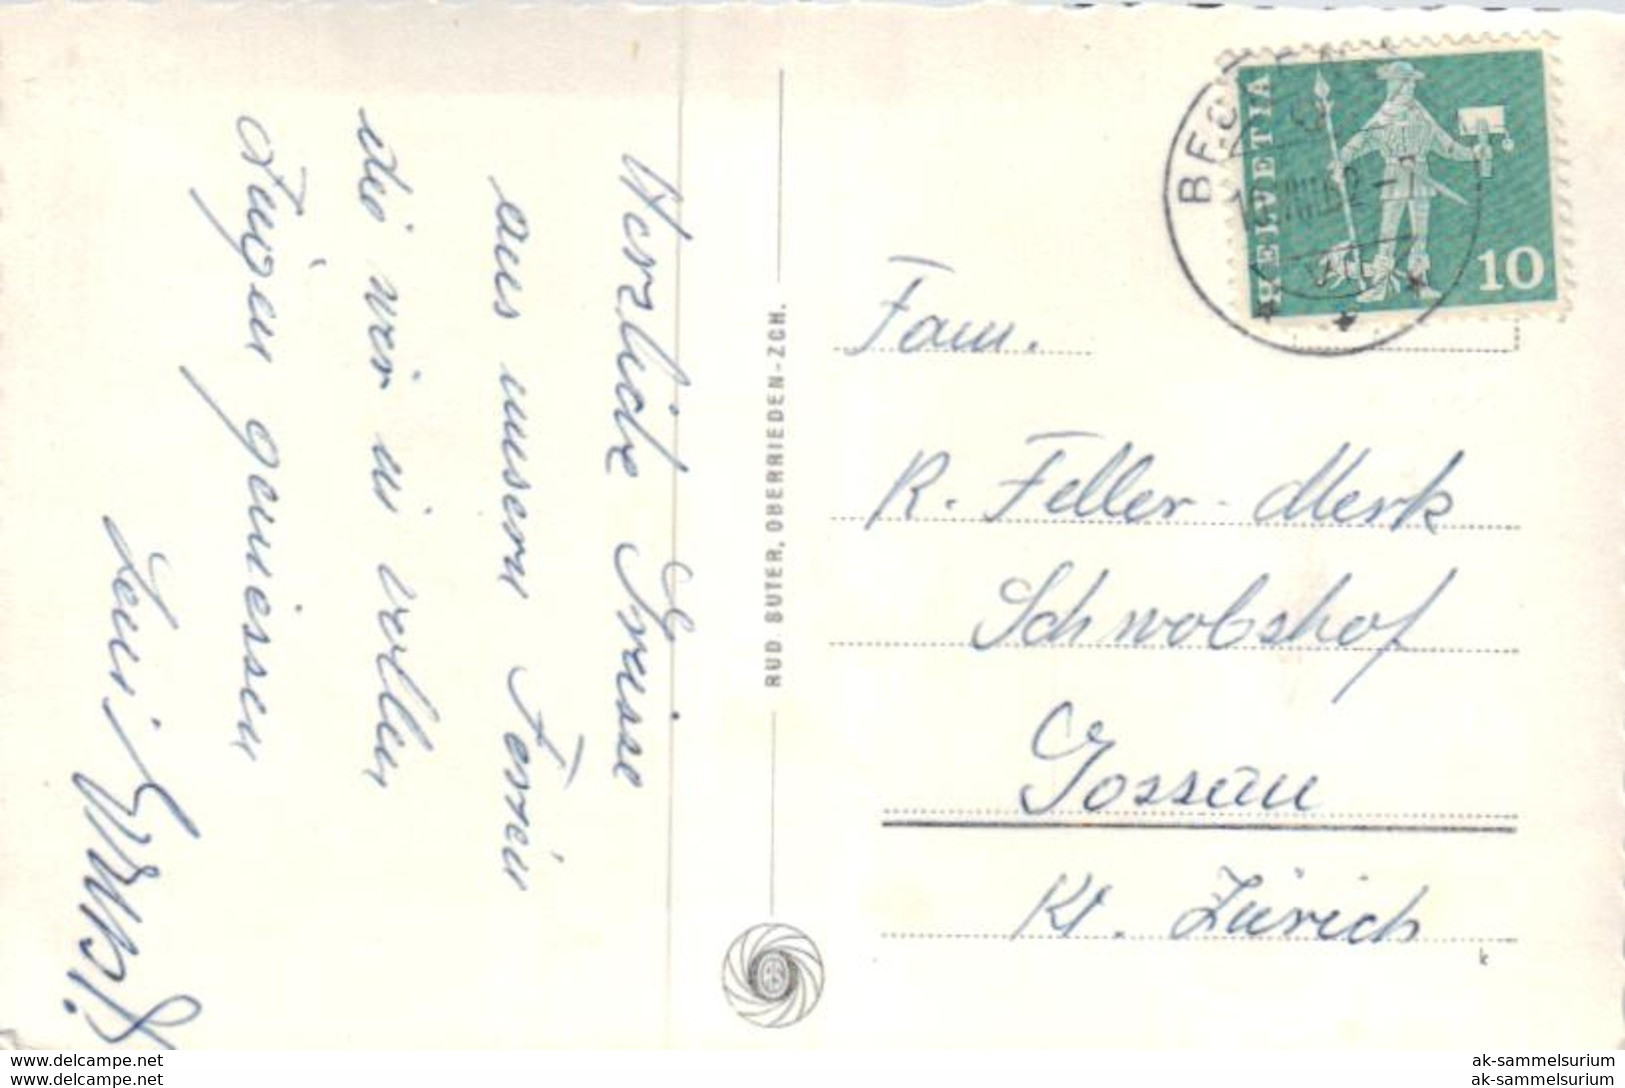 Herzliche Grüsse
aus unsern Ferien
die wir in vollen
Zügen geniessen
RUD. SUTER, OBERRIEDEN-ZCH.
HELVETIA
10
Fam.
R. Feller-Merk
Schwobshof
Gossau
Kt. Zürich
k
www.delcampe.net
www.delcampe.net
ak-sammelsurium
ak-sammelsurium